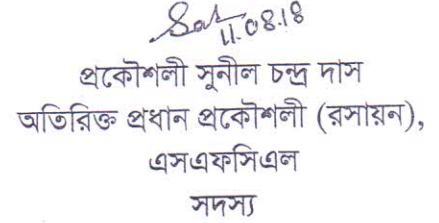 11.08.18
প্রকৌশলী সুনীল চন্দ্র দাস
অতিরিক্ত প্রধান প্রকৌশলী (রসায়ন),
এসএফসিএল
সদস্য